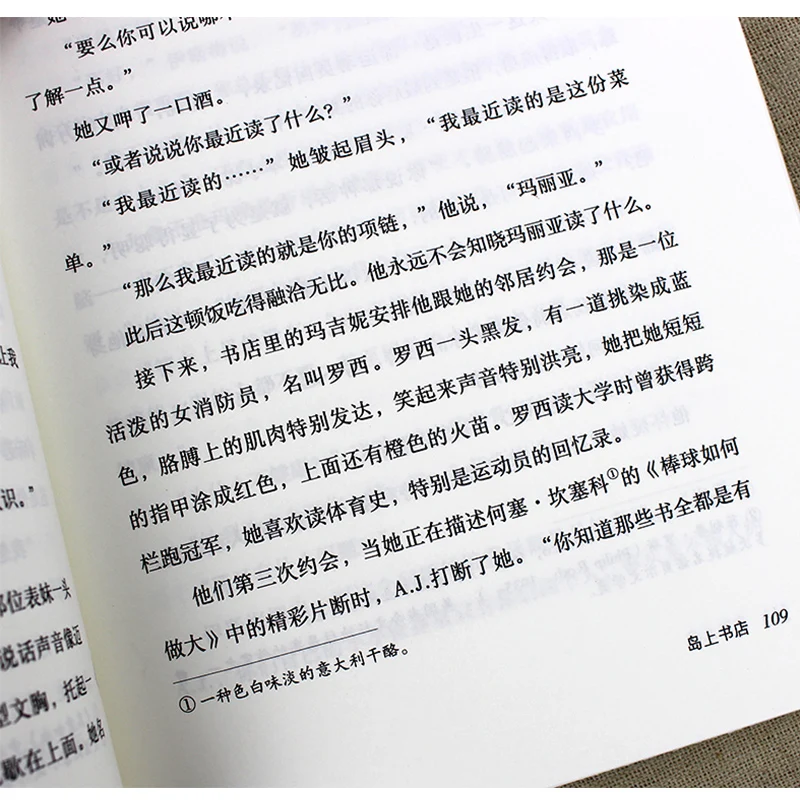 让我
识。”
位表妹一头
说话声音像迈
型文胸，托起一
歇在上面。她名
她
“要么你可以说哪
了解一点。”
她又呷了一口酒。
“或者说说你最近读了什么？”
“我最近读的……”她皱起眉头，“我最近读的是这份菜
单。”
“那么我最近读的就是你的项链，”他说，“玛丽亚。”
此后这顿饭吃得融洽无比。他永远不会知晓玛丽亚读了什么。
接下来，书店里的玛吉妮安排他跟她的邻居约会，那是一位
活泼的女消防员，名叫罗西。罗西一头黑发，有一道挑染成蓝
色，胳膊上的肌肉特别发达，笑起来声音特别洪亮，她把她短短
的指甲涂成红色，上面还有橙色的火苗。罗西读大学时曾获得跨
栏跑冠军，她喜欢读体育史，特别是运动员的回忆录。
他们第三次约会，当她正在描述何塞·坎塞科①的《棒球如何
做大》中的精彩片断时，A.J.打断了她。“你知道那些书全都是有
①一种色白味淡的意大利干酪。
岛上书店 109